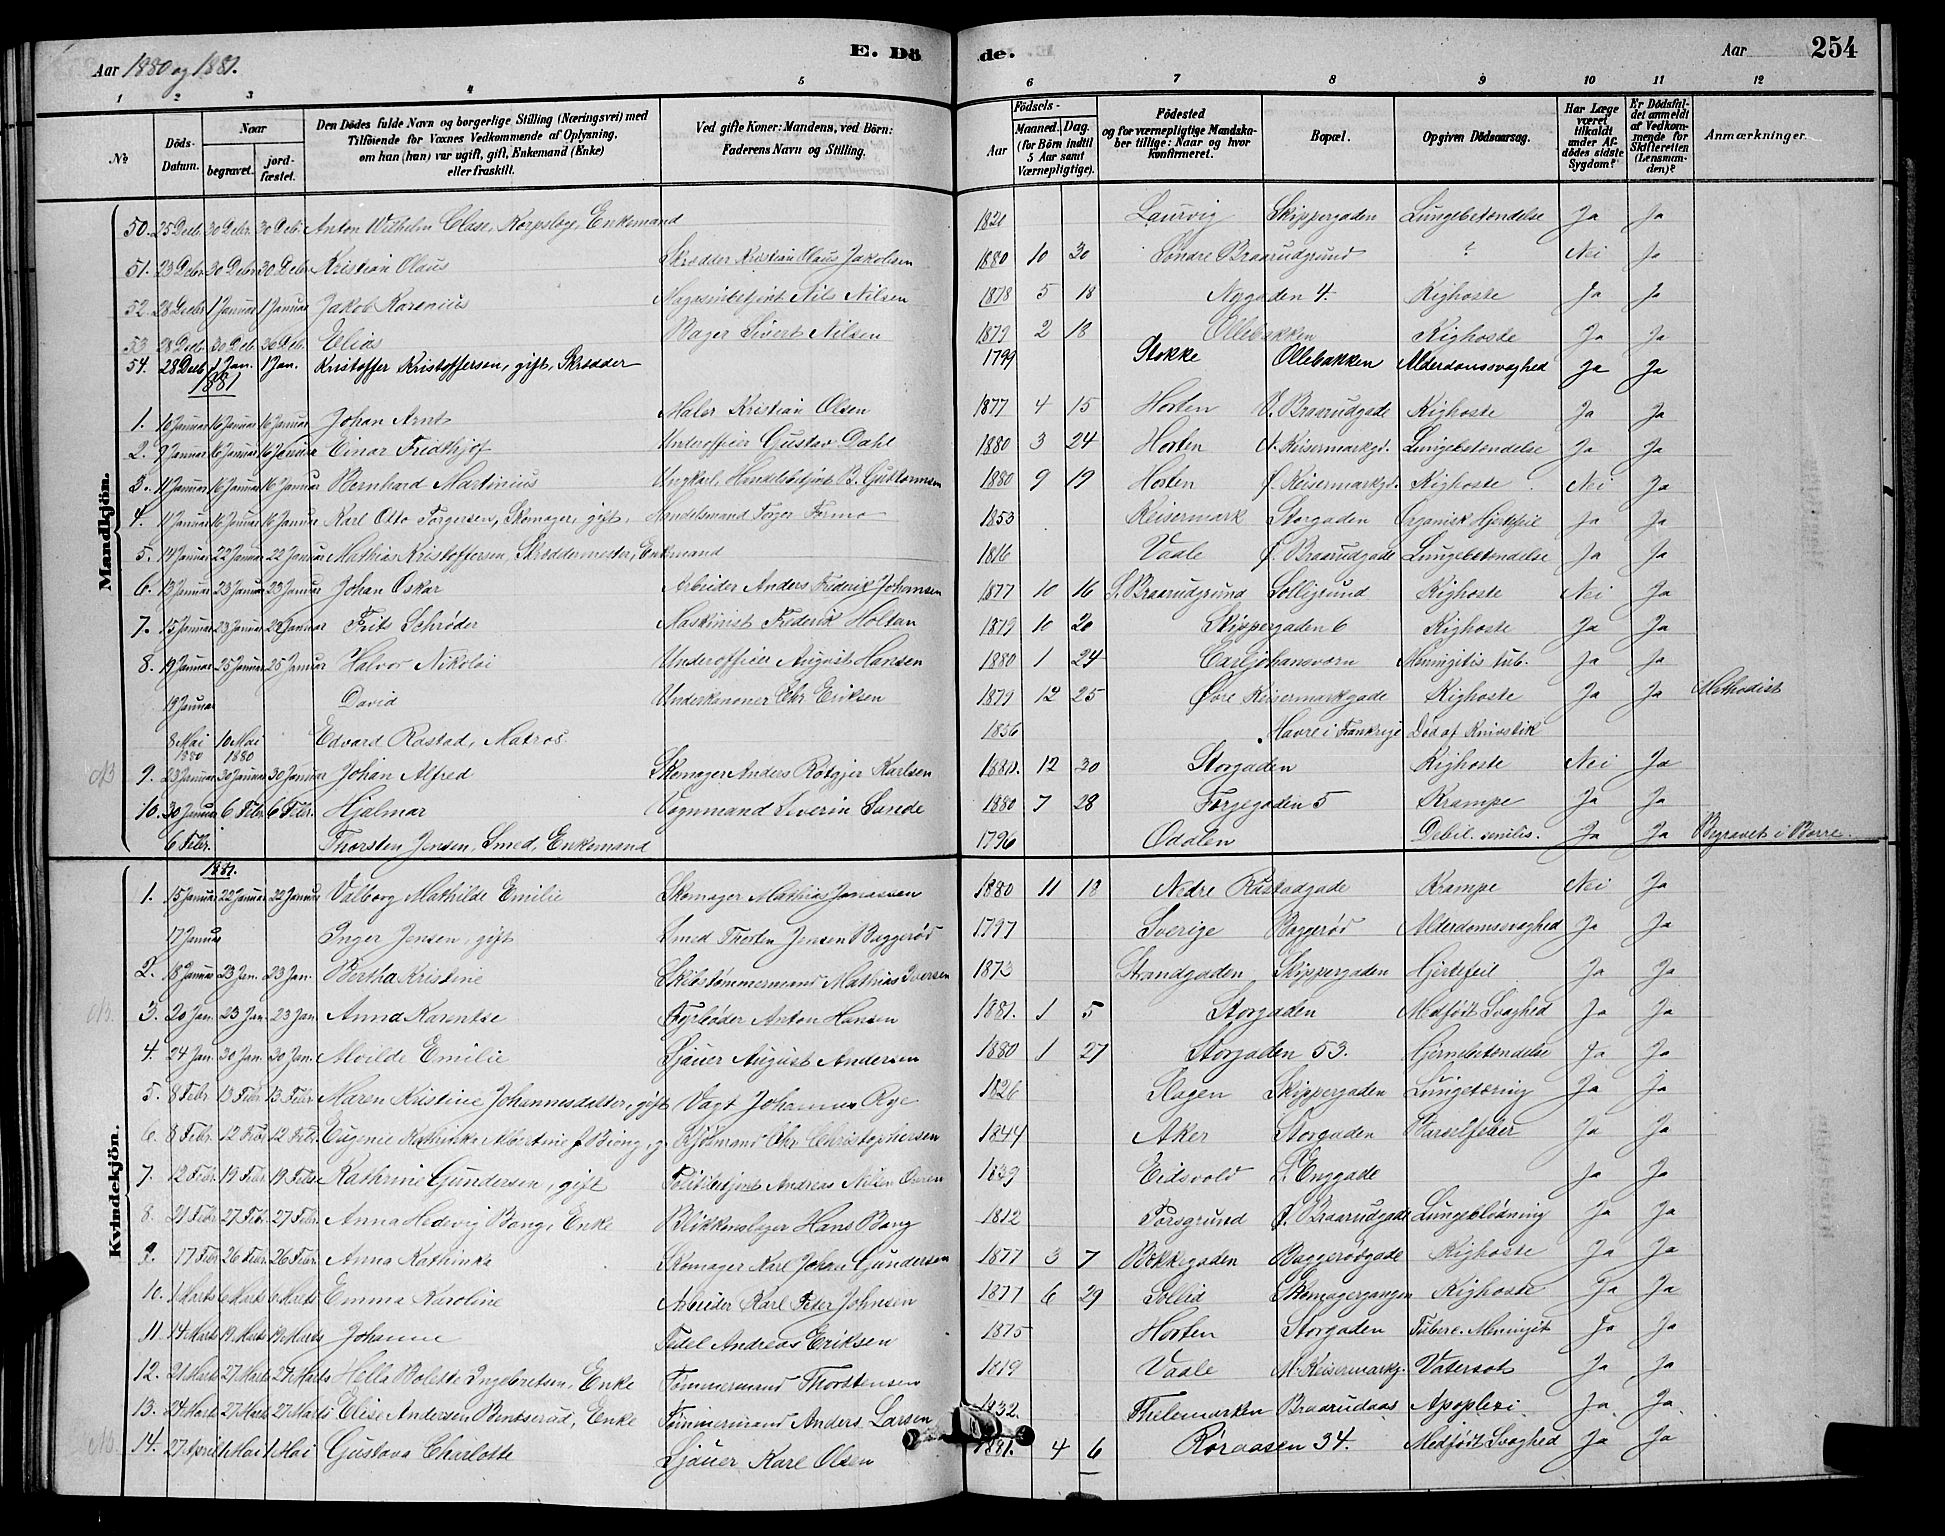 Aar 1880 og 1881.
E. Dö
de.
Aar
254
1 2 3 4 5
6 7 8 9 10 11 12
No
Döds-Datum.
Naar
begravet.
jord-fæstet.
Den Dödes fulde Navn og borgerlige Stilling (Næringsvei) med
Tilföiende for Voxnes Vedkommende af Oplysning,
om han (hun) var ugift, gift, Enkemand (Enke)
eller fraskilt.
Ved gifte Koner: Mandens, ved Börn:
Faderens Navn og Stilling.
Födsels-
Aar
Maaned. Dag.
(for Börn indtil
5 Aar samt
Værnepligtige).
Födested
og for værnepligtige Mandska-
ber tillige: Naar og hvor
konfirmeret.
Bopæl.
Opgiven Dödsaarsag.
Har Læge
været
tilkaldt
under Af-
dödes sidste
Sygdom?
Er Dödsfal-
det anmeldt
af Vedkom-
mende for
Skifteretten
(Lensman-
den)?
Anmærkninger.
Mandkjön.
50. 25 Decb. 30 Debr. 30 Deb. Anton Wilhelm Clase, Korpslæge, Enkemand 1820 Laurvig Skippergaden Lungebetændelse Ja Ja
51. 23 Debr. 30 Debr. 30 Debr. Kristian Olaus Skrædder Kristian Olaus Jakobsen 1880 10 30 Søndre Braarudgrund ? Nei Ja
52. 28 Decbr. 1 Januar 1 Januar Jakob Karenius Magasinbetjent Nils Nilsen 1878 5 18 Nygaden 4. Kighoste Ja Ja
53 28 Decb. 30 Deb. 30 Deb. Elias Bager Sivert Nilsen 1879 2 18 Ollebakken Kighoste Ja Ja
54. 28 Decb. 1 Jan. 1 Jan. Kristoffer Kristoffersen, gift, Skrædder 1799 Stokke Ollebakken Alderdomssvaghed Ja Ja
1881
1. 10 Januar 16 Januar 16 Januar Johan Arnt Maler Kristian Olsen 1877 4 15 Horten Ø. Braarudgade Kighoste Ja Ja
2. 9 Januar 16 Januar 16 Januar Einar Fridthjof Underofficer Gustav Dahl 1880 3 24 Horten N. Keisermarkgd. Lungebetændelse Ja Ja
3. 11 Januar 16 Januar 16 Januar Bernhard Martinius Ungkarl, Handelsbetjent B. 1880 9 19 Horten Ø. Keisermarkgd. Kighoste. Nei Ja
4. 11 Januar 16 Januar 16 Januar Karl Otto Torgersen, Skomager, gift, Handelsmand Torger Formo 1853 Keisermark Storgaden Organisk Hjertefeil Ja Ja
5. 14 Januar 22 Januar 22 Januar Mathias Kristoffersen, Skræddermester, Enkemand 1816 Vaale Ø. Braarudgade Lungebetændelse Ja Ja
6. 13 Januar 23 Januar 23 Januar Johan Oskar Arbeider Anders Frederik Johansen 1877 10 16 S. Braarudgrund Solligrund Kighoste Nei Ja
7. 15 Januar 23 Januar 23 Januar Frits Schrøder Maskinist Frederik Holtan 1879 10 20 Skippergaden 6 Kighoste Ja Ja
8. 19 Januar 25 Januar 25 Januar Halvor Nikolai Underofficer August Hansen 1880 1 24 Carljohansværn Meningitis tub. Ja Ja
19 Januar David Underkanoner Chr Eriksen 1879 12 25 Øvre Keisermarkgade Kighoste Ja Ja Methodist
8 Mai 1880 10 Mai 1880 Edvard Rastad, Matros 1856 Havre i Frankrige Død af Knivstik
9. 23 Januar 30 Januar 30 Januar Johan Alfred Skomager Anders Rötgjer Karlsen 1880. 12 30 Storgaden Kighoste Nei Ja
10. 30 Januar 6 Febr. 6 Febr. Hjalmar Vognmand Severin Sande 1880 7 28 Torjegaden 5 Krampe Ja Ja
6 Febr. Thorsten Jensen, Smed, Enkemand 1796 Odalen Debil. senilis. Ja Ja Begravet i Borre.
Kvindekjön.
1881.
1. 15 Januar 22 Januar 22 Januar Valborg Mathilde Emilie Skomager Mathias Jonassen 1880 11 18 Nedre Rustadgade Krampe Nei Ja
17 Januar Inger Jensen, gift Smed Thorsten Jensen Baggerød 1797 Sverige Baggerød Alderdomssvaghed Ja Ja
2. 18 Januar 23 Jan. 23 Jan. Bertha Kristine Skibstømmermand Mathias Iversen 1873 Strandgaden Skippergaden Hjertefeil Ja Ja
3. 20 Jan. 23 Jan. 23 Jan. Anna Karentse Fyrbøder Anton Hansen 1881. 1 5 Storgaden Medfödt Svaghed Ja Ja
4. 24 Jan. 30 Jan. 30 Jan. Alvilde Emilie Sjauer August Andersen 1880 1 27 Storgaden 53. Hjernebetændelse Ja Ja
5. 8 Febr. 13 Febr. 13 Febr. Maren Kristine Johannesdatter, gift Vagt Johannes Rye 1826 Slagen Skippergaden Lungetæring Ja Ja
6. 8 Febr. 12 Febr. 12 Febr. Eugenie Kathinka Albertine f. Biong, g. Sjömand Chr Christophersen 1844 Aker Storgaden Barselfeber Ja Ja
7. 12 Febr. 19 Febr. 19 Febr. Kathrine Gundersen, gift Politibetjent Andreas Nilsen 1839 Eidsvold S. Enggade Ja Ja
8. 21 Febr. 27 Febr. 27 Febr. Anna Hedevig Bang, Enke Blikkenslager Hans Bang 1812 Porsgrund Ø. Braarudgade Lungeblödning Ja Ja
9. 17 Febr. 26 Febr. 26 Febr. Anna Kathinka Skomager Karl Johan Gundersen 1877 3 7 Bakkegaden Baggerødgade Kighoste Ja Ja
10. 1 Marts 6 Marts 6 Marts Emma Karoline Arbeider Karl Peter Johnsen 1877 6 29 Sollid Skomagergangen Kighoste Ja Ja
11 14 Marts 19 Marts 19 Marts Johanne Fedel Andreas Eriksen 1875 Horten Storgaden Tuberc. Meningit Ja Ja
12. 21 Marts 27 Marts 27 Marts Hella Bolette Ingebretsen, Enke Tømmermand Thorstensen 1819 Vaale M. Keisermarkg. Vatersot Ja Ja
13. 24 Marts 27 Marts 27 Marts Elise Andersen Bentserud, Enke Tømmermand Anders Larsen 1832. Thelemarken Braarudaas Apoplexi Ja Ja
14. 27 April 1 Mai 1 Mai Gustava Charlotte Sjauer Karl Olsen 1881. 4 6 Röraasen 34. Medfödt Svaghed Ja Ja